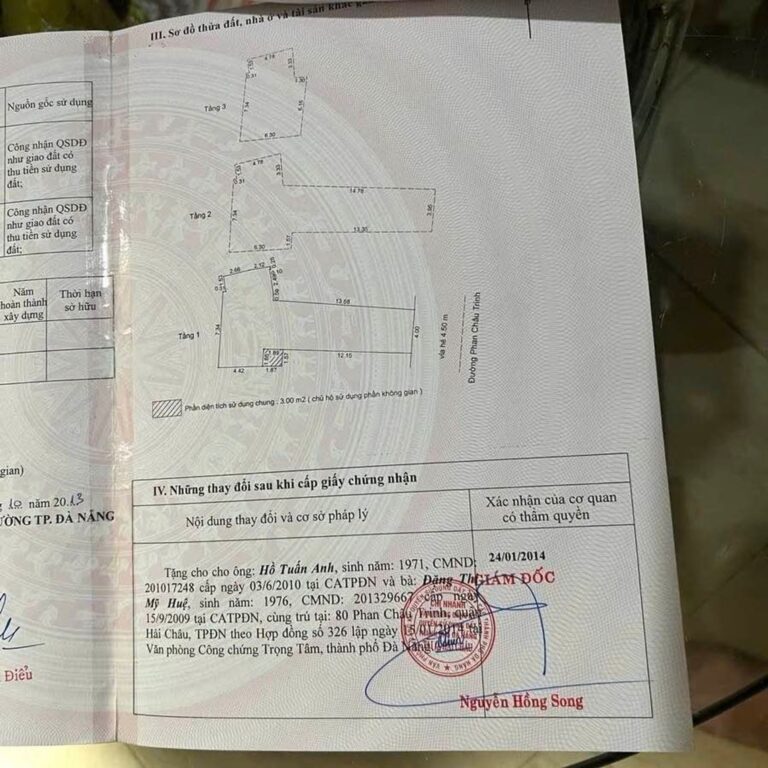 III. Sơ đồ thửa đất, nhà ở và tài sản khác
Nguồn gốc sử dụng
Công nhận QSDĐ
như giao đất có
thu tiền sử dụng
đất;
Công nhận QSDĐ
như giao đất có
thu tiền sử dụng
đất;
Năm
hoàn thành
xây dựng
Thời hạn
sở hữu
gian)
năm 2013
ƯỜNG TP. ĐÀ NẴNG
Điểu
Tầng 3
4.78
3.33
0.31
7.34
6.30
Tầng 2
4.78
3.33
0.31
14.78
7.34
3.95
13.35
6.30
1.57
Tầng 1
2.66
2.12
0.20
13.68
7.34
4.00
12.15
1.89
1.57
4.42
1.87
vỉa hè 4.50 m
Đường Phan Châu Trinh
Phần diện tích sử dụng chung : 3.00 m2 ( chủ hộ sử dụng phần không gian )
IV. Những thay đổi sau khi cấp giấy chứng nhận
Nội dung thay đổi và cơ sở pháp lý
Xác nhận của cơ quan
có thẩm quyền
Tặng cho cho ông: Hồ Tuấn Anh, sinh năm: 1971, CMND:
201017248 cấp ngày 03/6/2010 tại CATPĐN và bà: Đặng Thị
Mỹ Huệ, sinh năm: 1976, CMND: 201329667 cấp ngày
15/9/2009 tại CATPĐN, cùng trú tại: 80 Phan Châu Trinh, quận
Hải Châu, TPĐN theo Hợp đồng số 326 lập ngày 15/01/2014 tại
Văn phòng Công chứng Trọng Tâm, thành phố Đà Nẵng
24/01/2014
GIÁM ĐỐC
CHI NHÁNH
Nguyễn Hồng Song